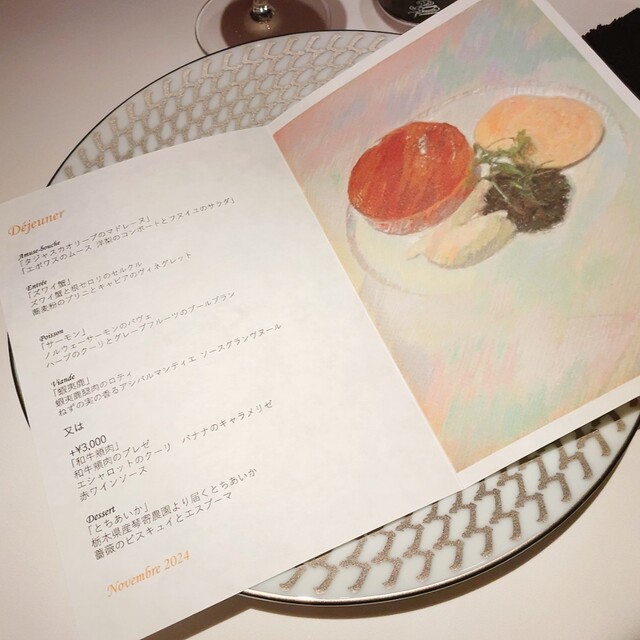 Déjeuner
Amuse-bouche
「タジャスカオリーブのマドレーヌ」
「エポワスのムース 洋梨のコンポートとフヌイユのサラダ」
Entrée
「ズワイ蟹」
ズワイ蟹と根セロリのセルクル
蕎麦粉のブリニとキャビアのヴィネグレット
Poisson
「サーモン」
ノルウェーサーモンのパヴェ
ハーブのクーリとグレープフルーツのブールブラン
Viande
「蝦夷鹿」
蝦夷鹿腿肉のロティ
ねずの実の香るアシパルマンティエ ソースグランヴヌール
又は
+¥3,000
「和牛頬肉」
和牛頬肉のブレゼ
エシャロットのクーリ バナナのキャラメリゼ
赤ワインソース
Dessert
「とちあいか」
栃木県産琴寄農園より届くとちあいか
薔薇のビスキュイとエスプーマ
Novembre 2024